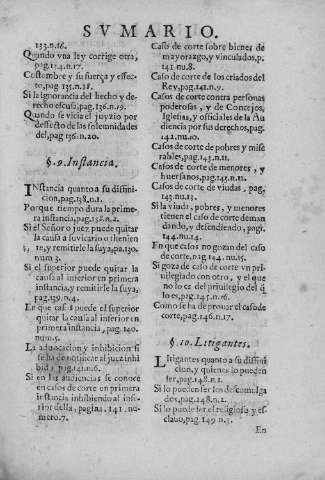 SVMARIO.
133.n.16.
Quando vna ley corrige otra,
pag.134.n.17.
Costombre y su fuerça y effec-
to, pag 135.n.18.
Si la ignorancia del hecho y de-
recho escusa, pag.136.n.19.
Quando se vicia el juyzio por
deffecto de las solemnidades
del, pag 136.n.20.
§.9.Instancia.
INstancia quanto a su diffini-
cion, pag.138.n.1.
Porque tiempo dura la prime-
ra instancia, pag.138.n.2.
Si el Señor o juez puede quitar
la causa a su vicario o thenien
te, y remitirle la suya, pa.139.
num 3.
Si el superior puede quitar la
causa al inferior en primera
instancia, y remitirle la suya,
pag.139.n.4.
En que casos puede el superior
quitar la causa al inferior en
primera instancia, pag.140.
num.5.
La aduocacion y inhibicion si
se ha de notificar al juez inhi
bido, pag.141.n.6.
Si en las audiencias se conoce
en casos de corte en primera
instancia inhibiendo al infe-
rior della, pagina. 141. nu-
mero.7.
Caso de corte sobre bienes de
mayorazgo, y vinculados, p.
141.nu.8.
Caso de corte de los criados del
Rey, pag.141.n.9.
Casos de corte contra personas
poderosas, y de Concejos,
Iglesias, y officiales de la Au
diencia por sus derechos, pag.
142.nu.10.
Casos de corte de pobres y mise
rables, pag.143.n.11.
Casos de corte de menores, y
huersanos, pag.143.n.12.
Casos de corte de viudas, pag,
143.nu.13.
Si la viuda, pobres, y menores
tienen el caso de corte deman
dando, y defendiendo, pagi.
144.nu.14.
En que casos no gozan del caso
de corte, pag.144.nu.15.
Si goza de caso de corte vn pri-
uilegado con otro, y el que
no lo es del priuilegio del q̃
lo es, pag.145.n.16.
Como se ha de prouar el caso de
corte, pag.146.n.17.
§.10.Litigantes.
LItigantes quanto a su diffini
cion, y quienes lo pueden
ser, pag.148.n.1.
Si lo pueden ser los descomulga
dos, pag.148.n.2.
Si lo puede ser el religioso y es-
clauo, pag.149 n.3.
En